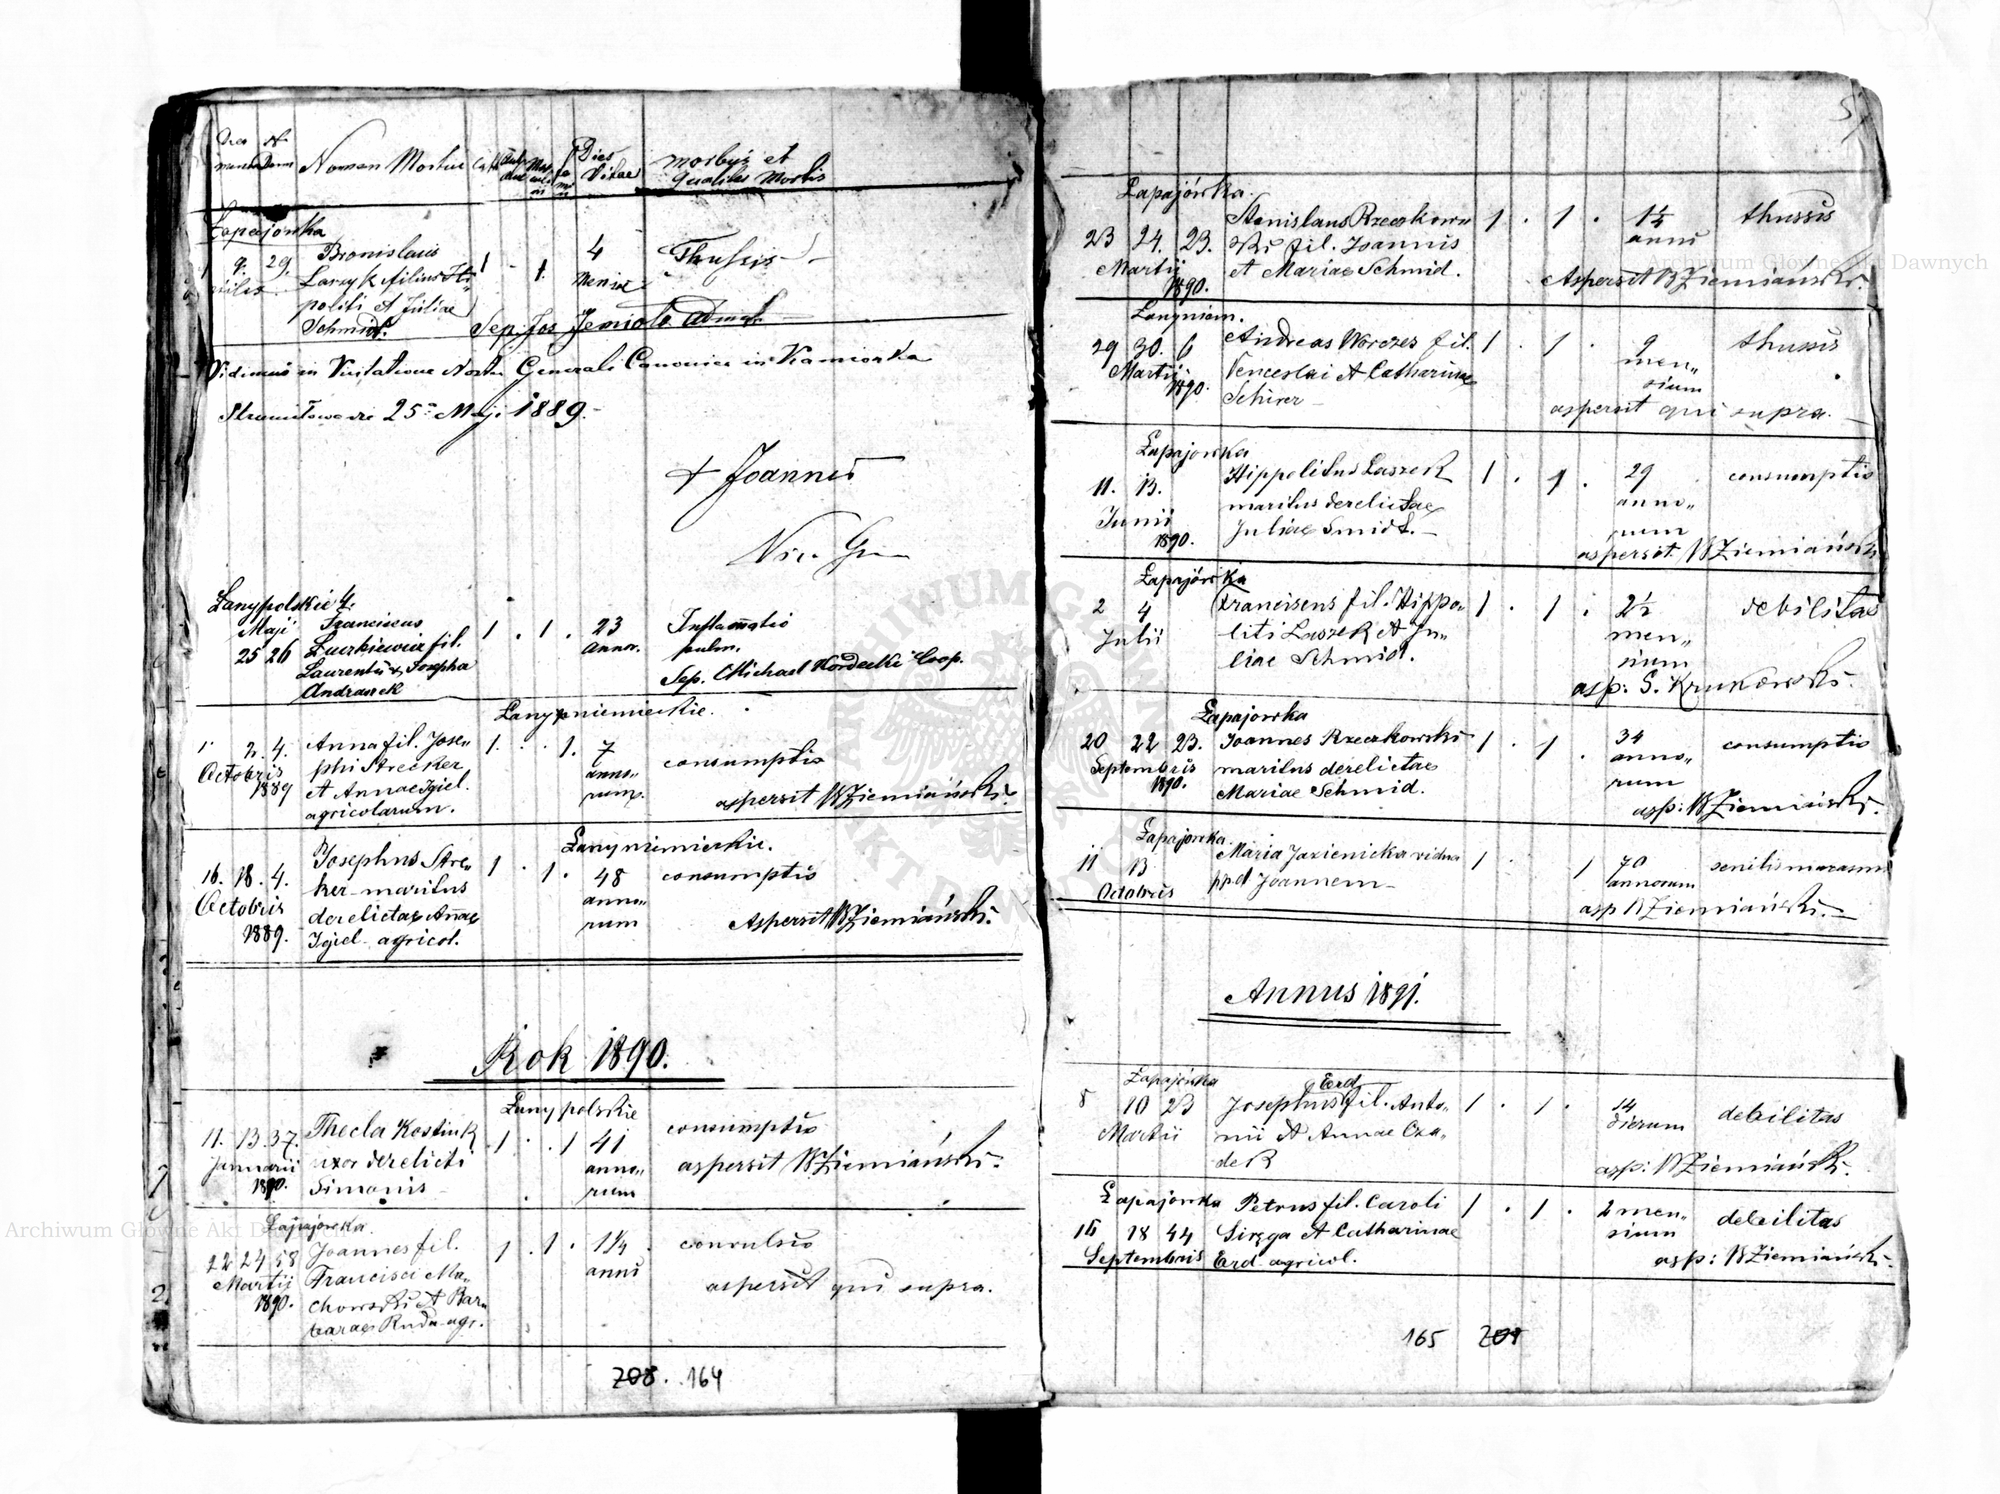 Nomen Mortui
Dies
Vitae
morbus et
Qualitas Mortis
Łapajówka
9. 29. Bronislaus
1 4
Thussis
Laszyk filius Hi-
politi et Juliae
Schmidt.
Sep. Jos Jemioło Adm.
Vidimus in Visitatione Nostra Generali Canonica in Kamionka
Strumiłowa die 25 Maji 1889.
+ Joannes
Łanypolskie 4.
Maji Franciscus
25 26
Laurentii & Josepha
Andranek
1 . 1 . 23
annor.
Inflamatio
pulm.
Sep. Michael Kordecki Coop.
Łanyniemieckie.
1 2. 4.
Octobris
1889
Anna fil. Jose-
phi Strecker
et Annae Igiel.
agricolarum.
1. . . 1. 7
anno-
rum.
consumptio
aspersit WZiemiański.
Łanyniemieckie.
16. 18. 4.
Octobris
1889.
Josephus Stre-
ker maritus
derelictae Annae
Igiel agricol.
1 . 1 . 48
anno-
rum
consumptio
Aspersit WZiemiański.
Rok 1890.
Łanypolskie
11. 13. 37.
Januarii
1890.
Thecla Kostiuk
uxor derelicti
Simonis
1 . . 1 41
anno-
rum
consumptio
aspersit WZiemiański.
Łapajowka.
22 24 58
Martii
1890.
Joannes fil.
Francisci Ma-
chowski et Bar-
barae Ruda agr.
1 . 1 . 1¼
anni
convulsio
aspersit qui supra.
208. 164
Łapajówka.
23 24. 23.
Martii
1890.
Stanislaus Rzeczkow-
ski fil. Joannis
et Mariae Schmid.
1 . 1 .
anni
thussis
Aspersit WZiemiański.
29 30. 6
Martii
1890.
Andreas Worczes fil.
Venceslai et Catharinae
Schirer
1 . 1 . 9
men-
sium
thussis
aspersit qui supra.
Łapajowka
11. 13.
Junii
1890.
Hippolitus Laszek
maritus derelictae
Juliae Smidt.
1 . 1 . 29
anno-
rum
consumptio
aspersit. WZiemiański
Łapajówka
2 4
Julii
Franciscus fil. Hippo-
liti Laszek et Ju-
liae Schmidt.
1 . 1 . 2½
men-
sium
debilitas
asp: S. Krukowski.
Łapajowka
20 22 23.
Septembris
1890.
Joannes Rzeczkowski
maritus derelictae
Mariae Schmid.
1 . 1 . 34
anno-
rum
consumptio
asp: WZiemiański.
Łapajowka.
11 13
Octobris
Maria Jazienicka vidua
pp.d Joannem
1 . 1 70
annorum
senilis marasmus
asp WZiemiański.
Annus 1891.
Łapajówka
8 10 23
Martii
Josephus Erd fil. Anto-
nii et Annae Cza-
dek
1 . 1 . 14
dierum
debilitas
asp: WZiemiański.
Łapajowka
16 18 44
Septembris
Petrus fil. Caroli
Sirzga et Catharinae
Erd agricol.
1 . 1 . 2 men-
sium
debilitas
asp: WZiemiański.
165 209
Archiwum Główne Akt Dawnych
Archiwum Główne Akt Dawnych
ARCHIWUM GŁÓWNE AKT DAWNYCH